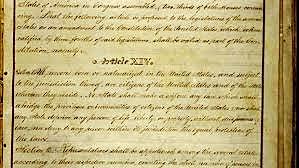 States of America in Congress assembled, two thirds of both Houses concur-
ring, That the following article be proposed to the legislatures of the several
States as an amendment to the Constitution of the United States, which, when
ratified by three fourths of said legislatures, shall be valid as part of the Con-
stitution, namely:
Article XIV.
Section 1. persons born or naturalized in the United States, and subject
to the jurisdiction thereof, are citizens of the United States and of the State
wherein they reside. No State shall make or any law which shall
abridge the privileges or immunities of citizens of the United States; nor shall
any State deprive any person of life, liberty, or property, without due process of
law; nor deny to any person within its jurisdiction the equal protection of the
laws.
Section 2. Representatives shall be apportioned among the several States
according to their respective numbers, counting the whole number of persons